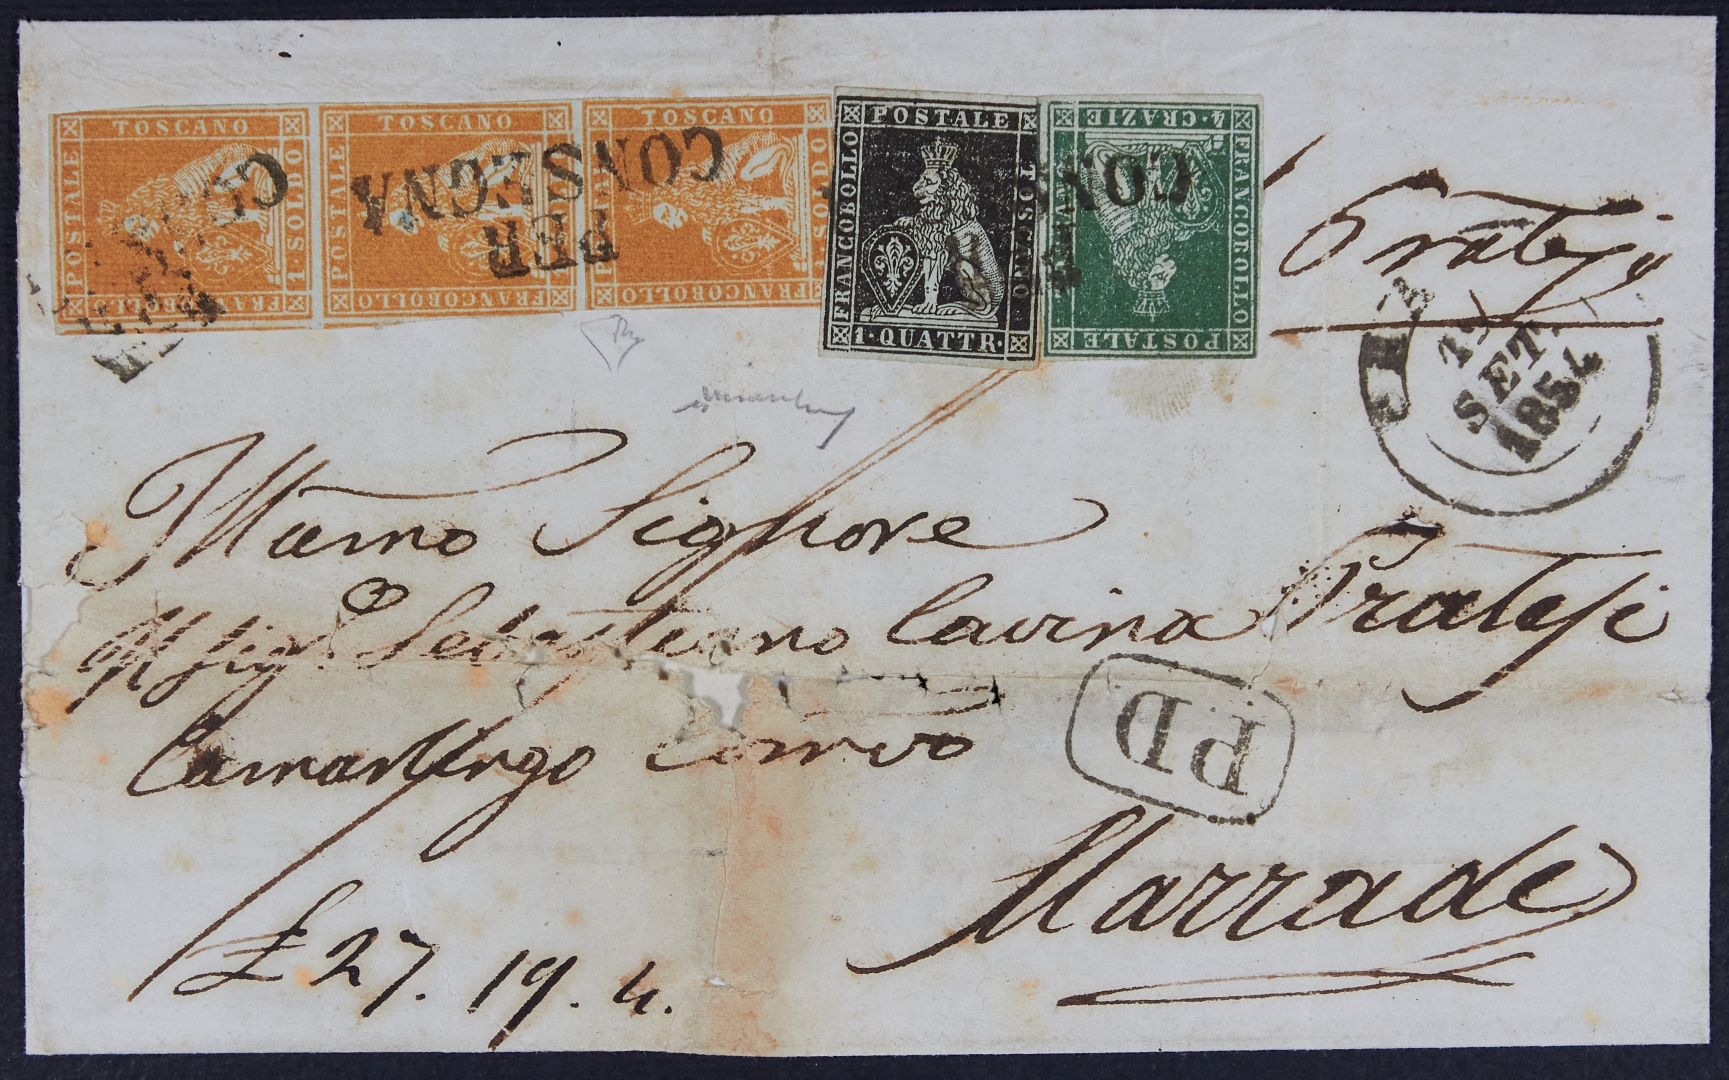 TOSCANO
POSTALE
1 SOLDO
FRANCOBOLLO
TOSCANO
POSTALE
1 SOLDO
FRANCOBOLLO
TOSCANO
SOLDO
FRANCOBOLLO
POSTALE
FRANCOBOLLO
TOSCANO
1 · QUATTR ·
4 · CRAZIE
FRANCOBOLLO
POSTALE
PER
CONSEGNA
PER
CONSEGNA
CONS
17
SET.
1854
Illamo Signore
Il Sig.e Sebastiano Cavina Pratesi
Camarlingo
PD
Marradi
£ 27. 19. 4.